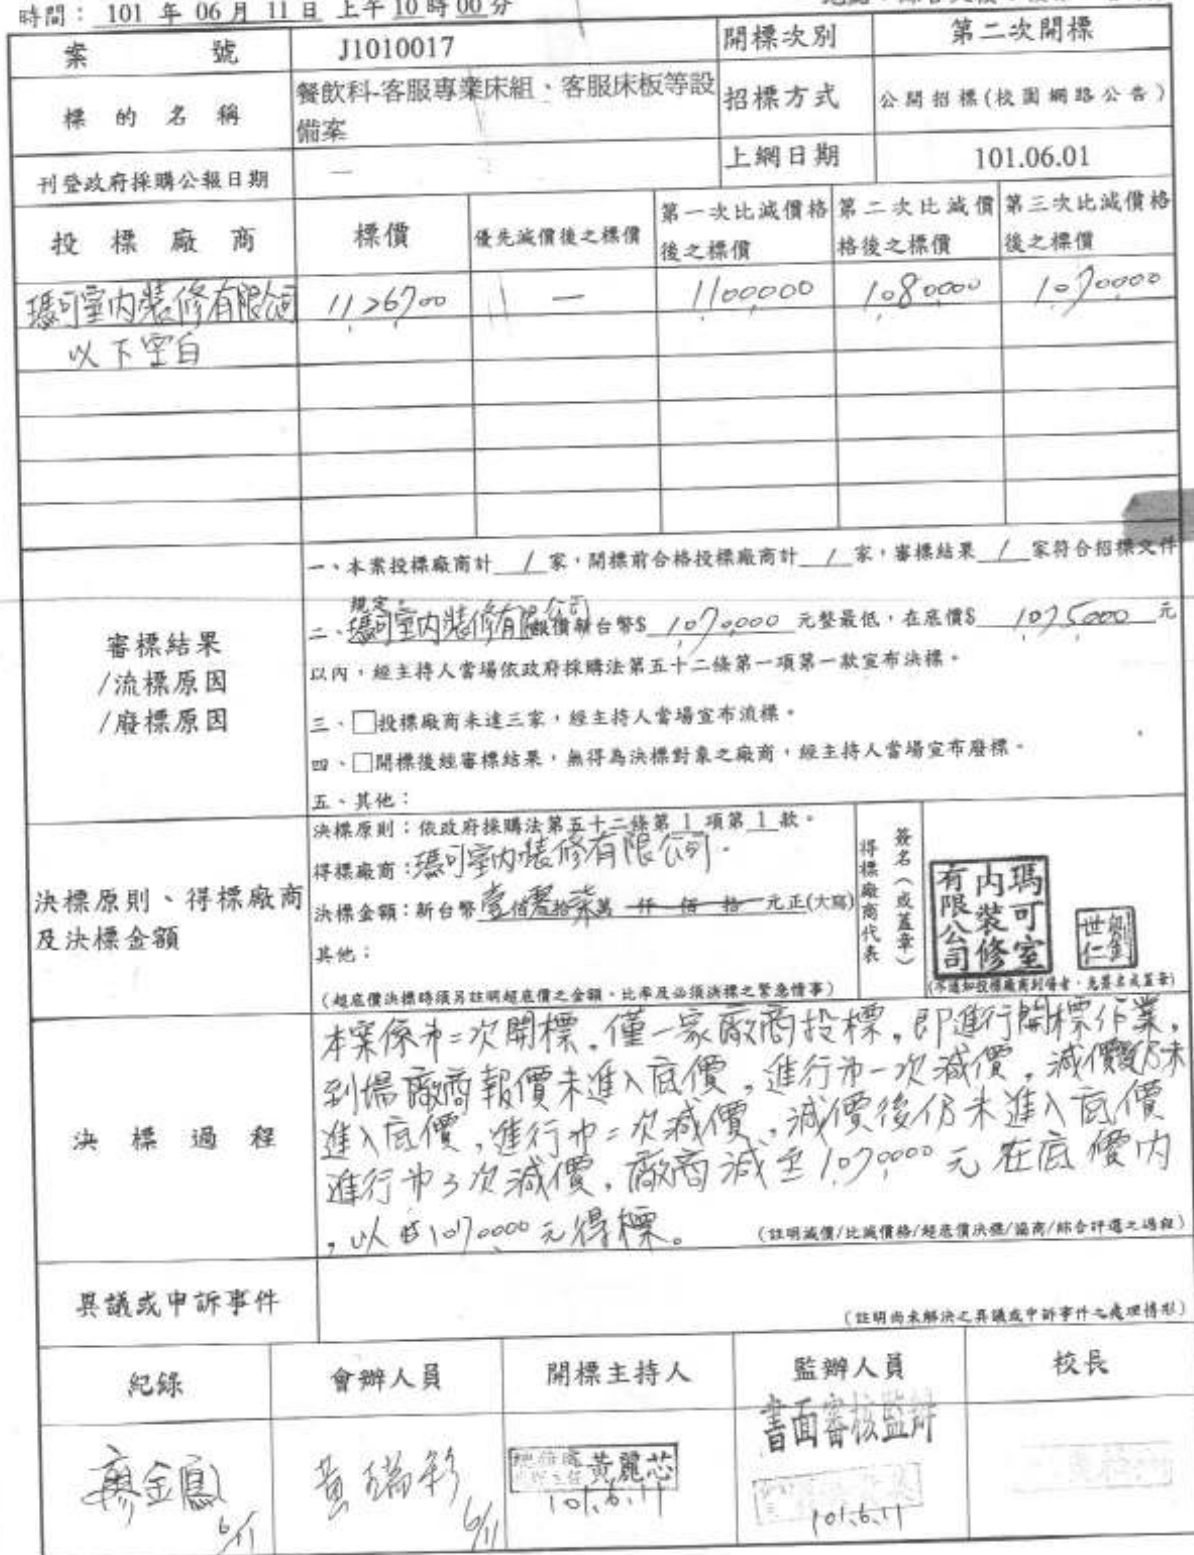 時間：101 年 06 月 11 日 上午 10 時 00 分
案 號 J1010017 開標次別 第二次開標
標 的 名 稱 餐飲科-客服專業床組、客服床板等設備案 招標方式 公開招標(校園網路公告)
刊登政府採購公報日期 — 上網日期 101.06.01
投 標 廠 商 標價 優先減價後之標價 第一次比減價格後之標價 第二次比減價格後之標價 第三次比減價格後之標價
瑪可室內裝修有限公司 1,126,700 — 1,100,000 1,080,000 1,070,000
以下空白
審標結果
/流標原因
/廢標原因
一、本案投標廠商計 1 家，開標前合格投標廠商計 1 家，審標結果 1 家符合招標文件
規定。
二、瑪可室內裝修有限公司報價新台幣$ 1,070,000 元整最低，在底價$ 1,075,000 元
以內，經主持人當場依政府採購法第五十二條第一項第一款宣布決標。
三、□投標廠商未達三家，經主持人當場宣布流標。
四、□開標後經審標結果，無得為決標對象之廠商，經主持人當場宣布廢標。
五、其他：
決標原則、得標廠商
及決標金額
決標原則：依政府採購法第五十二條第 1 項第 1 款。
得標廠商：瑪可室內裝修有限公司.
決標金額：新台幣壹佰零拾柒萬 仟 佰 拾 元正(大寫)
其他：
(超底價決標時須另註明超底價之金額、比率及必須決標之緊急情事)
得標廠商代表
簽名（或蓋章）
瑪可室
內裝修
有限公司
劉
世仁
(不通知投標廠商到場者，免簽名或蓋章)
決 標 過 程
本案係第二次開標，僅一家廠商投標，即進行開標作業，
到場廠商報價未進入底價，進行第一次減價，減價後仍未
進入底價，進行第二次減價，減價後仍未進入底價
進行第3次減價，廠商減至1,070,000元在底價內
，以1,070,000元得標。
(註明減價/比減價格/超底價決標/協商/綜合評選之過程)
異議或申訴事件
(註明尚未解決之異議或申訴事件之處理情形)
紀錄 會辦人員 開標主持人 監辦人員 校長
書面審核監辦
廖金鳳 6/11
黃瑞彩 6/11
黃麗芯
101.6.11
101.6.11